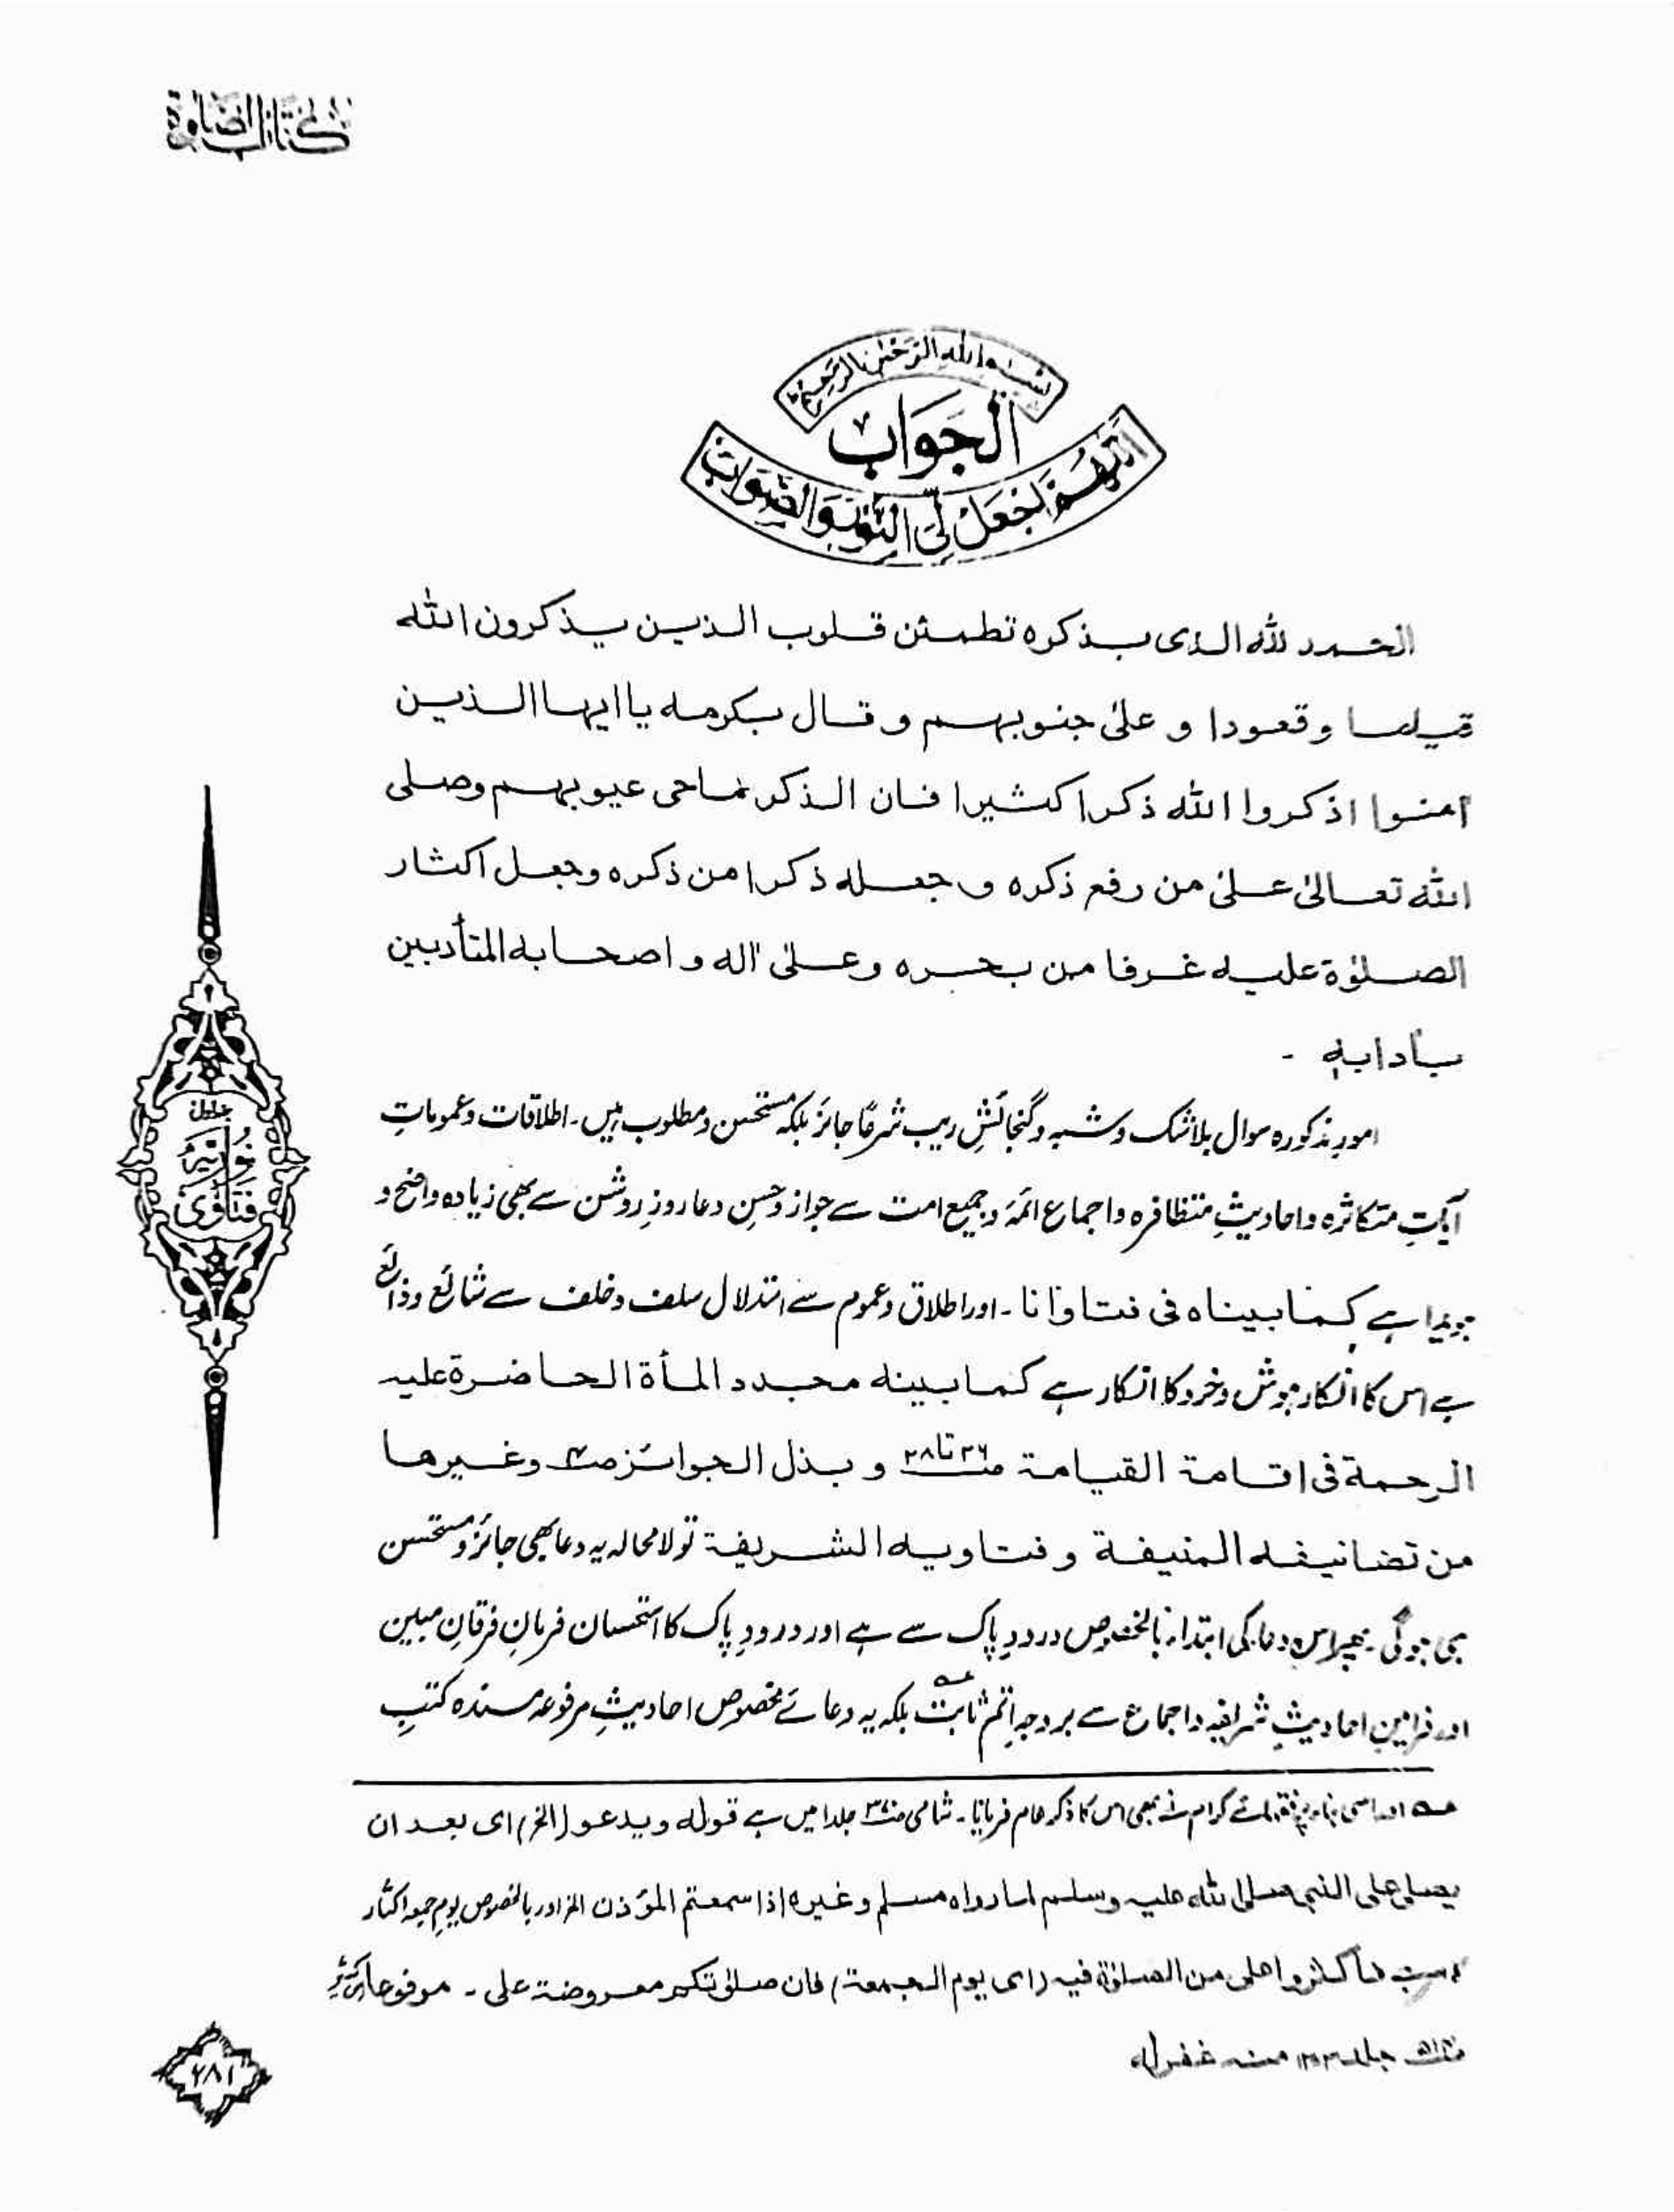 كتاب الصلوة
بسم الله الرحمن الرحيم
الجواب
اللهم اجعل لی النور والصواب
الحمد لله الذی بذكره تطمئن قلوب الذين يذكرون الله
قياما وقعودا و علیٰ جنوبهم و قال بكرمه يا ايها الذين
آمنوا اذكروا الله ذكرا كثيرا فان الذكر ماحی عيوبهم وصلی
الله تعالیٰ علیٰ من رفع ذكره و جعله ذكرا من ذكره وجعل اكثار
الصلوٰة عليه غرفا من بحره وعلیٰ اٰله و اصحابه المتأدبين
بأدابه -
امورِ مذکورہ سوال بلاشک وشبہ وگنجائشِ ریب شرعًا جائز بلکہ مستحسن ومطلوب ہیں۔ اطلاقات وعموماتِ
آیاتِ متکاثرہ واحادیثِ متظافرہ واجماعِ ائمہ وجمیع امت سے جواز وحسنِ دعا روزِ روشن سے بھی زیادہ واضح و
ہویدا ہے كما بيناه فی فتاوانا ۔ اور اطلاق وعموم سے استدلال سلف وخلف سے شائع وذائع
ہے اس کا انکار ہوش وخرد کا انکار ہے كما بينه مجدد المأة الحاضرة عليه
الرحمة فی اقامة القيامة و بذل الجوائز وغيرها
من تصانيفه المنيفة و فتاويه الشريفة تو لامحالہ یہ دعا بھی جائز و مستحسن
ہی ہوگی۔ پھر اس دعا کی ابتداء بالخصوص درودِ پاک سے ہے اور درودِ پاک کا استحسان فرمانِ فرقانِ مبین
اور فرامینِ احادیثِ شریفہ واجماع سے بروجہِ اتم ثابت عـه بلکہ یہ دعائے مخصوص احادیثِ مرفوعہ مسندہ کتبِ
عـه اور اسی بناء پر فقہائے کرام نے بھی اس کا ذکر عام فرمایا۔ شامی جلد ا میں ہے قوله ويدعو (الخ) ای بعد ان
يصلی علی النبی صلی الله عليه وسلم لما رواه مسلم وغيره اذا سمعتم المؤذن الخ اور بالخصوص یومِ جمعہ اکثار
فأكثروا علی من الصلوٰة فيه (ای يوم الجمعة) فان صلوٰتكم معروضة علی ۔ مرفوعا
جلد منه غفرله
جلد اول
فتاویٰ نوریہ
۲۸۱